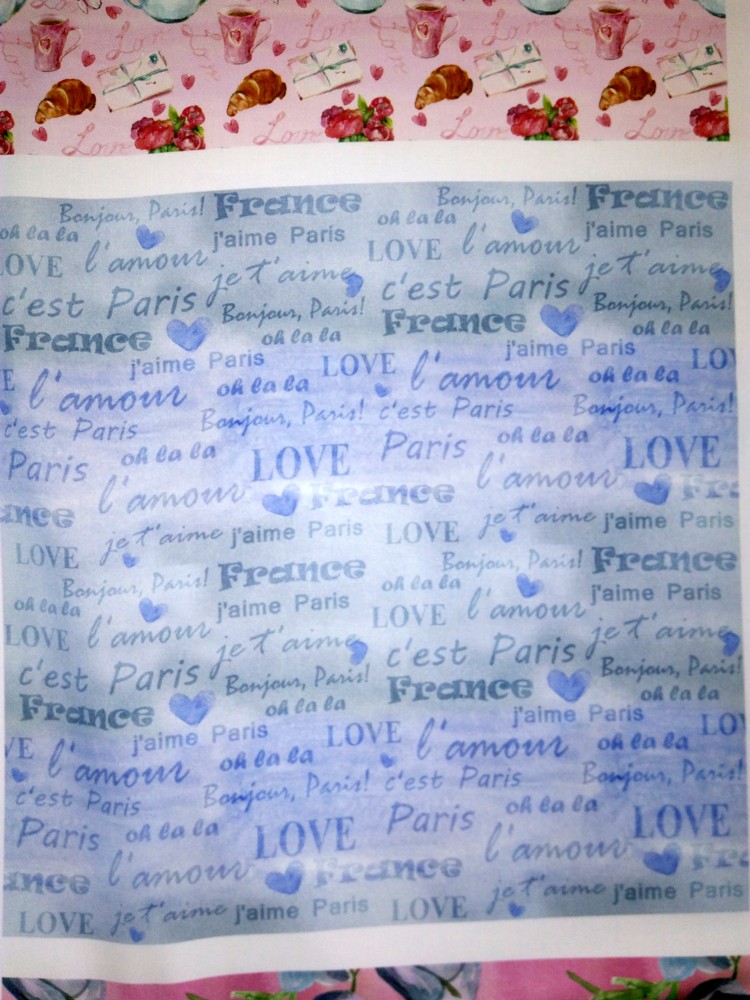 Love
Love
Love
Love
Love
Love
Bonjour, Paris! France Bonjour, Paris! France
oh la la j'aime Paris oh la la j'aime Paris
LOVE l'amour LOVE l'amour
je t'aime je t'aime
c'est Paris c'est Paris
Bonjour, Paris! Bonjour, Paris!
France oh la la France oh la la
j'aime Paris LOVE j'aime Paris
l'amour oh la la l'amour oh la la
c'est Paris Bonjour, Paris! c'est Paris Bonjour, Paris!
Paris oh la la LOVE Paris oh la la LOVE
l'amour France l'amour
LOVE je t'aime j'aime Paris LOVE je t'aime j'aime Paris
Bonjour, Paris! France Bonjour, Paris! France
oh la la j'aime Paris oh la la j'aime Paris
LOVE l'amour LOVE l'amour
je t'aime je t'aime
c'est Paris c'est Paris
Bonjour, Paris! Bonjour, Paris!
France oh la la France oh la la
j'aime Paris LOVE j'aime Paris
l'amour oh la la l'amour oh la la
c'est Paris Bonjour, Paris! c'est Paris Bonjour, Paris!
Paris oh la la LOVE Paris oh la la LOVE
l'amour France l'amour
LOVE je t'aime j'aime Paris LOVE je t'aime j'aime Paris